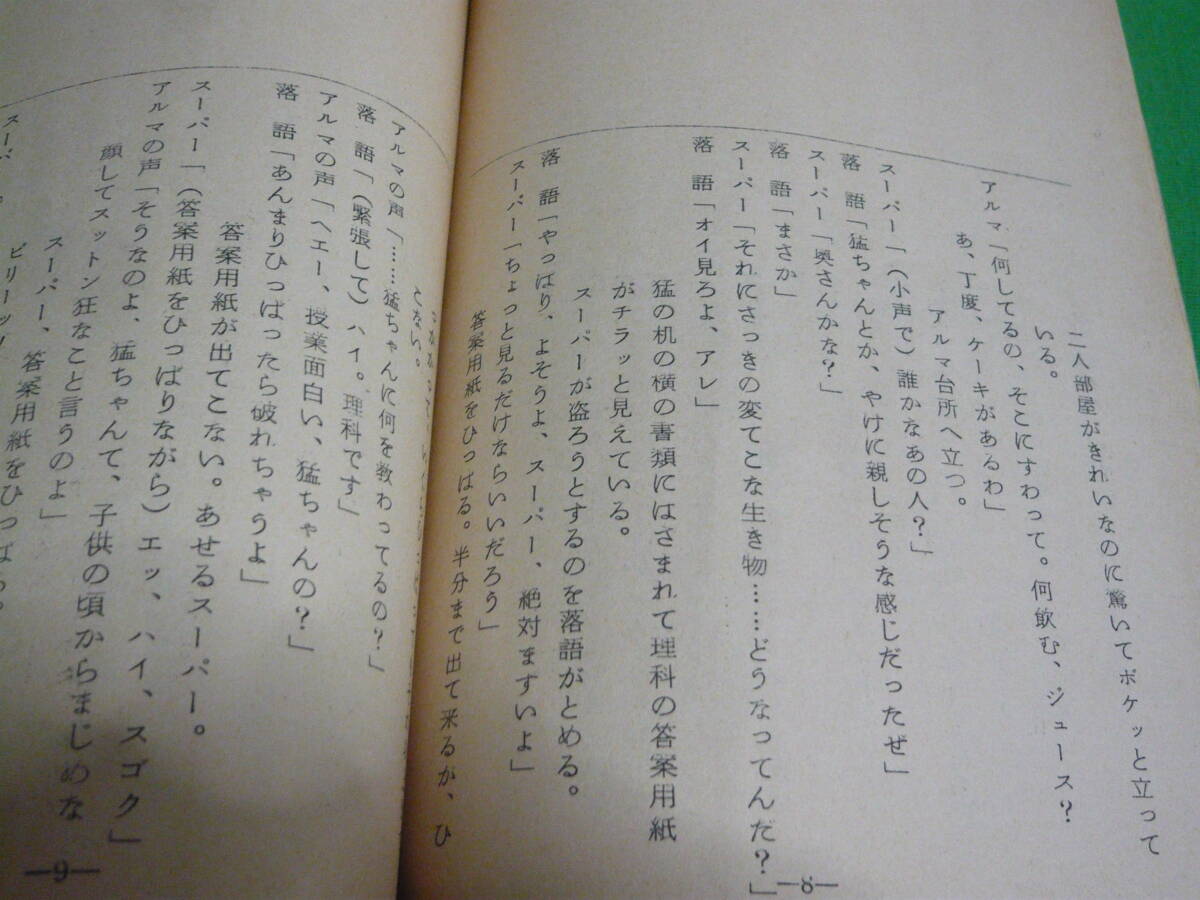 二人部屋がきれいなのに驚いてポケッと立って
いる。
アルマ「何してるの、そこにすわって。何飲む、ジュース？
あ、丁度、ケーキがあるわ」
アルマ台所へ立つ。
スーパー「（小声で）誰かなあの人？」
落 語「猛ちゃんとか、やけに親しそうな感じだったぜ」
スーパー「奥さんかな？」
落 語「まさか」
スーパー「それにさっきの変てこな生き物……どうなってんだ？」
落 語「オイ見ろよ、アレ」
猛の机の横の書類にはさまれて理科の答案用紙
がチラッと見えている。
スーパーが盗ろうとするのを落語がとめる。
落 語「やっぱり、よそうよ、スーパー、絶対ますいよ」
スーパー「ちょっと見るだけならいいだろう」
答案用紙をひっぱる。半分まで出て来るが、ひ
—8—
こない。
アルマの声「……猛ちゃんに何を教わってるの？」
落 語「（緊張して）ハイ。理科です」
アルマの声「ヘエー、授業面白い、猛ちゃんの？」
落 語「あんまりひっぱったら破れちゃうよ」
答案用紙が出てこない。あせるスーパー。
スーパー「（答案用紙をひっぱりながら）エッ、ハイ、スゴク」
アルマの声「そうなのよ、猛ちゃんて、子供の頃からまじめな
顔してスットン狂なこと言うのよ」
スーパー、答案用紙をひっぱる。
ビリーッ！
スーパー
—9—